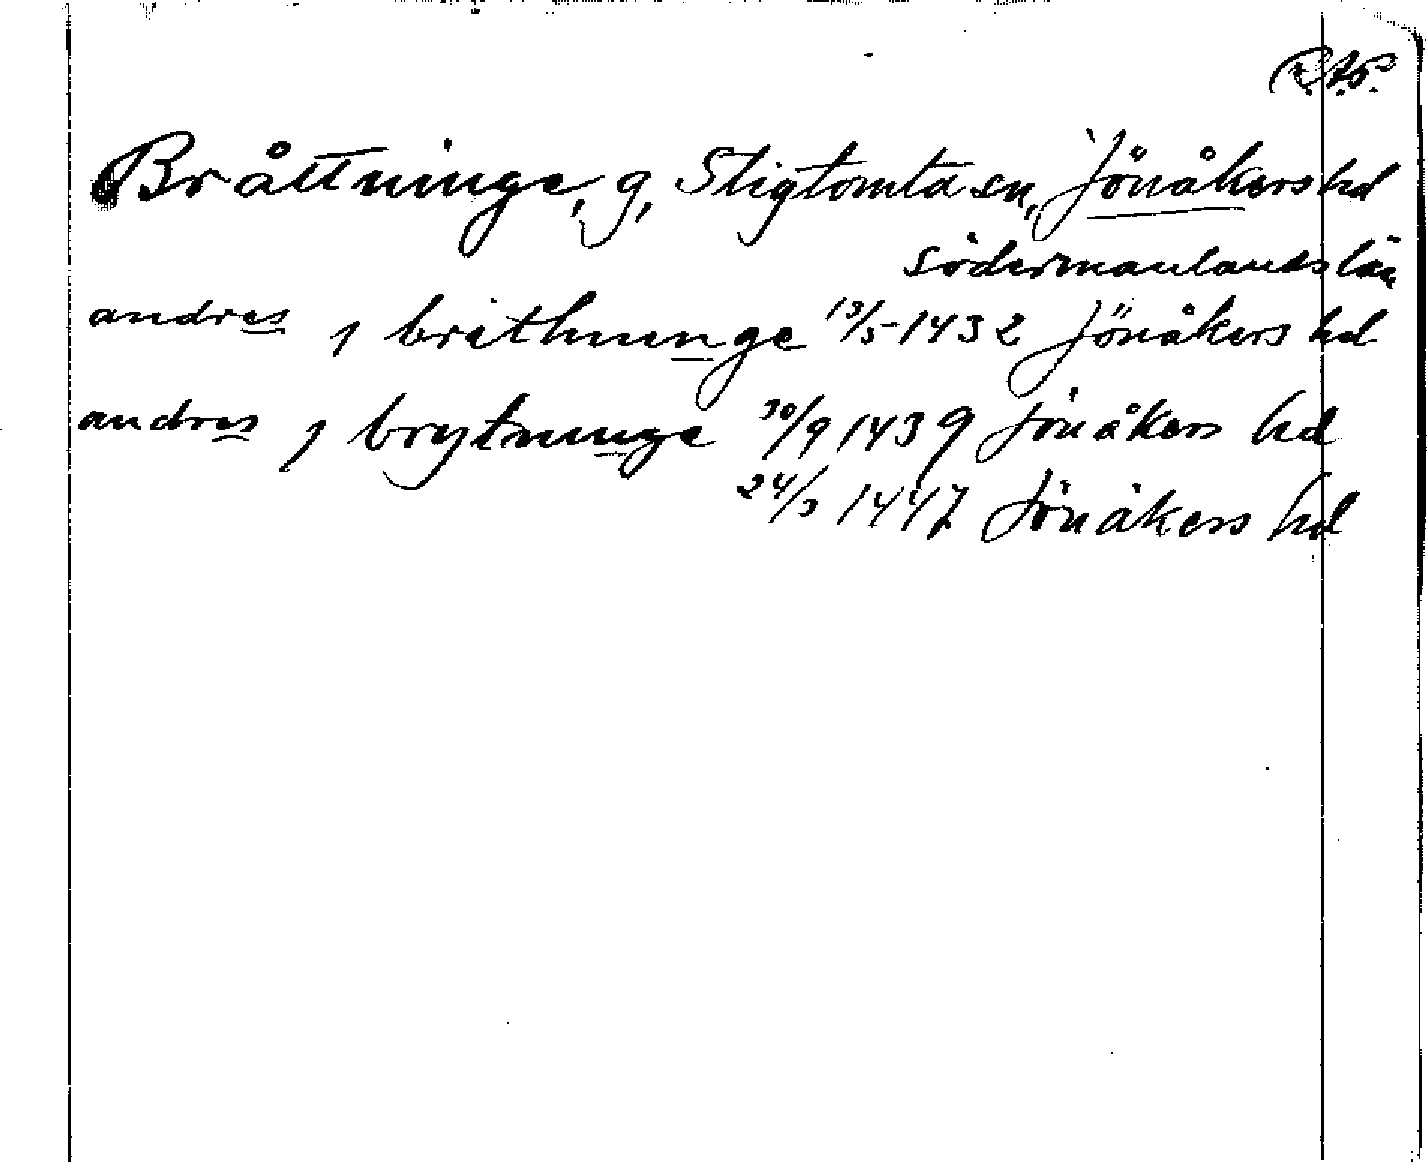 R.A.P.
Bråttninge, g, Stigtomta sn, Jönåkers hd
Södermanlands län
andres j brithnunge 13/5 1432 Jönåkers hd
andres j brytnunge 30/9 1439 Jönåkers hd
24/3 1447 Jönåkers hd